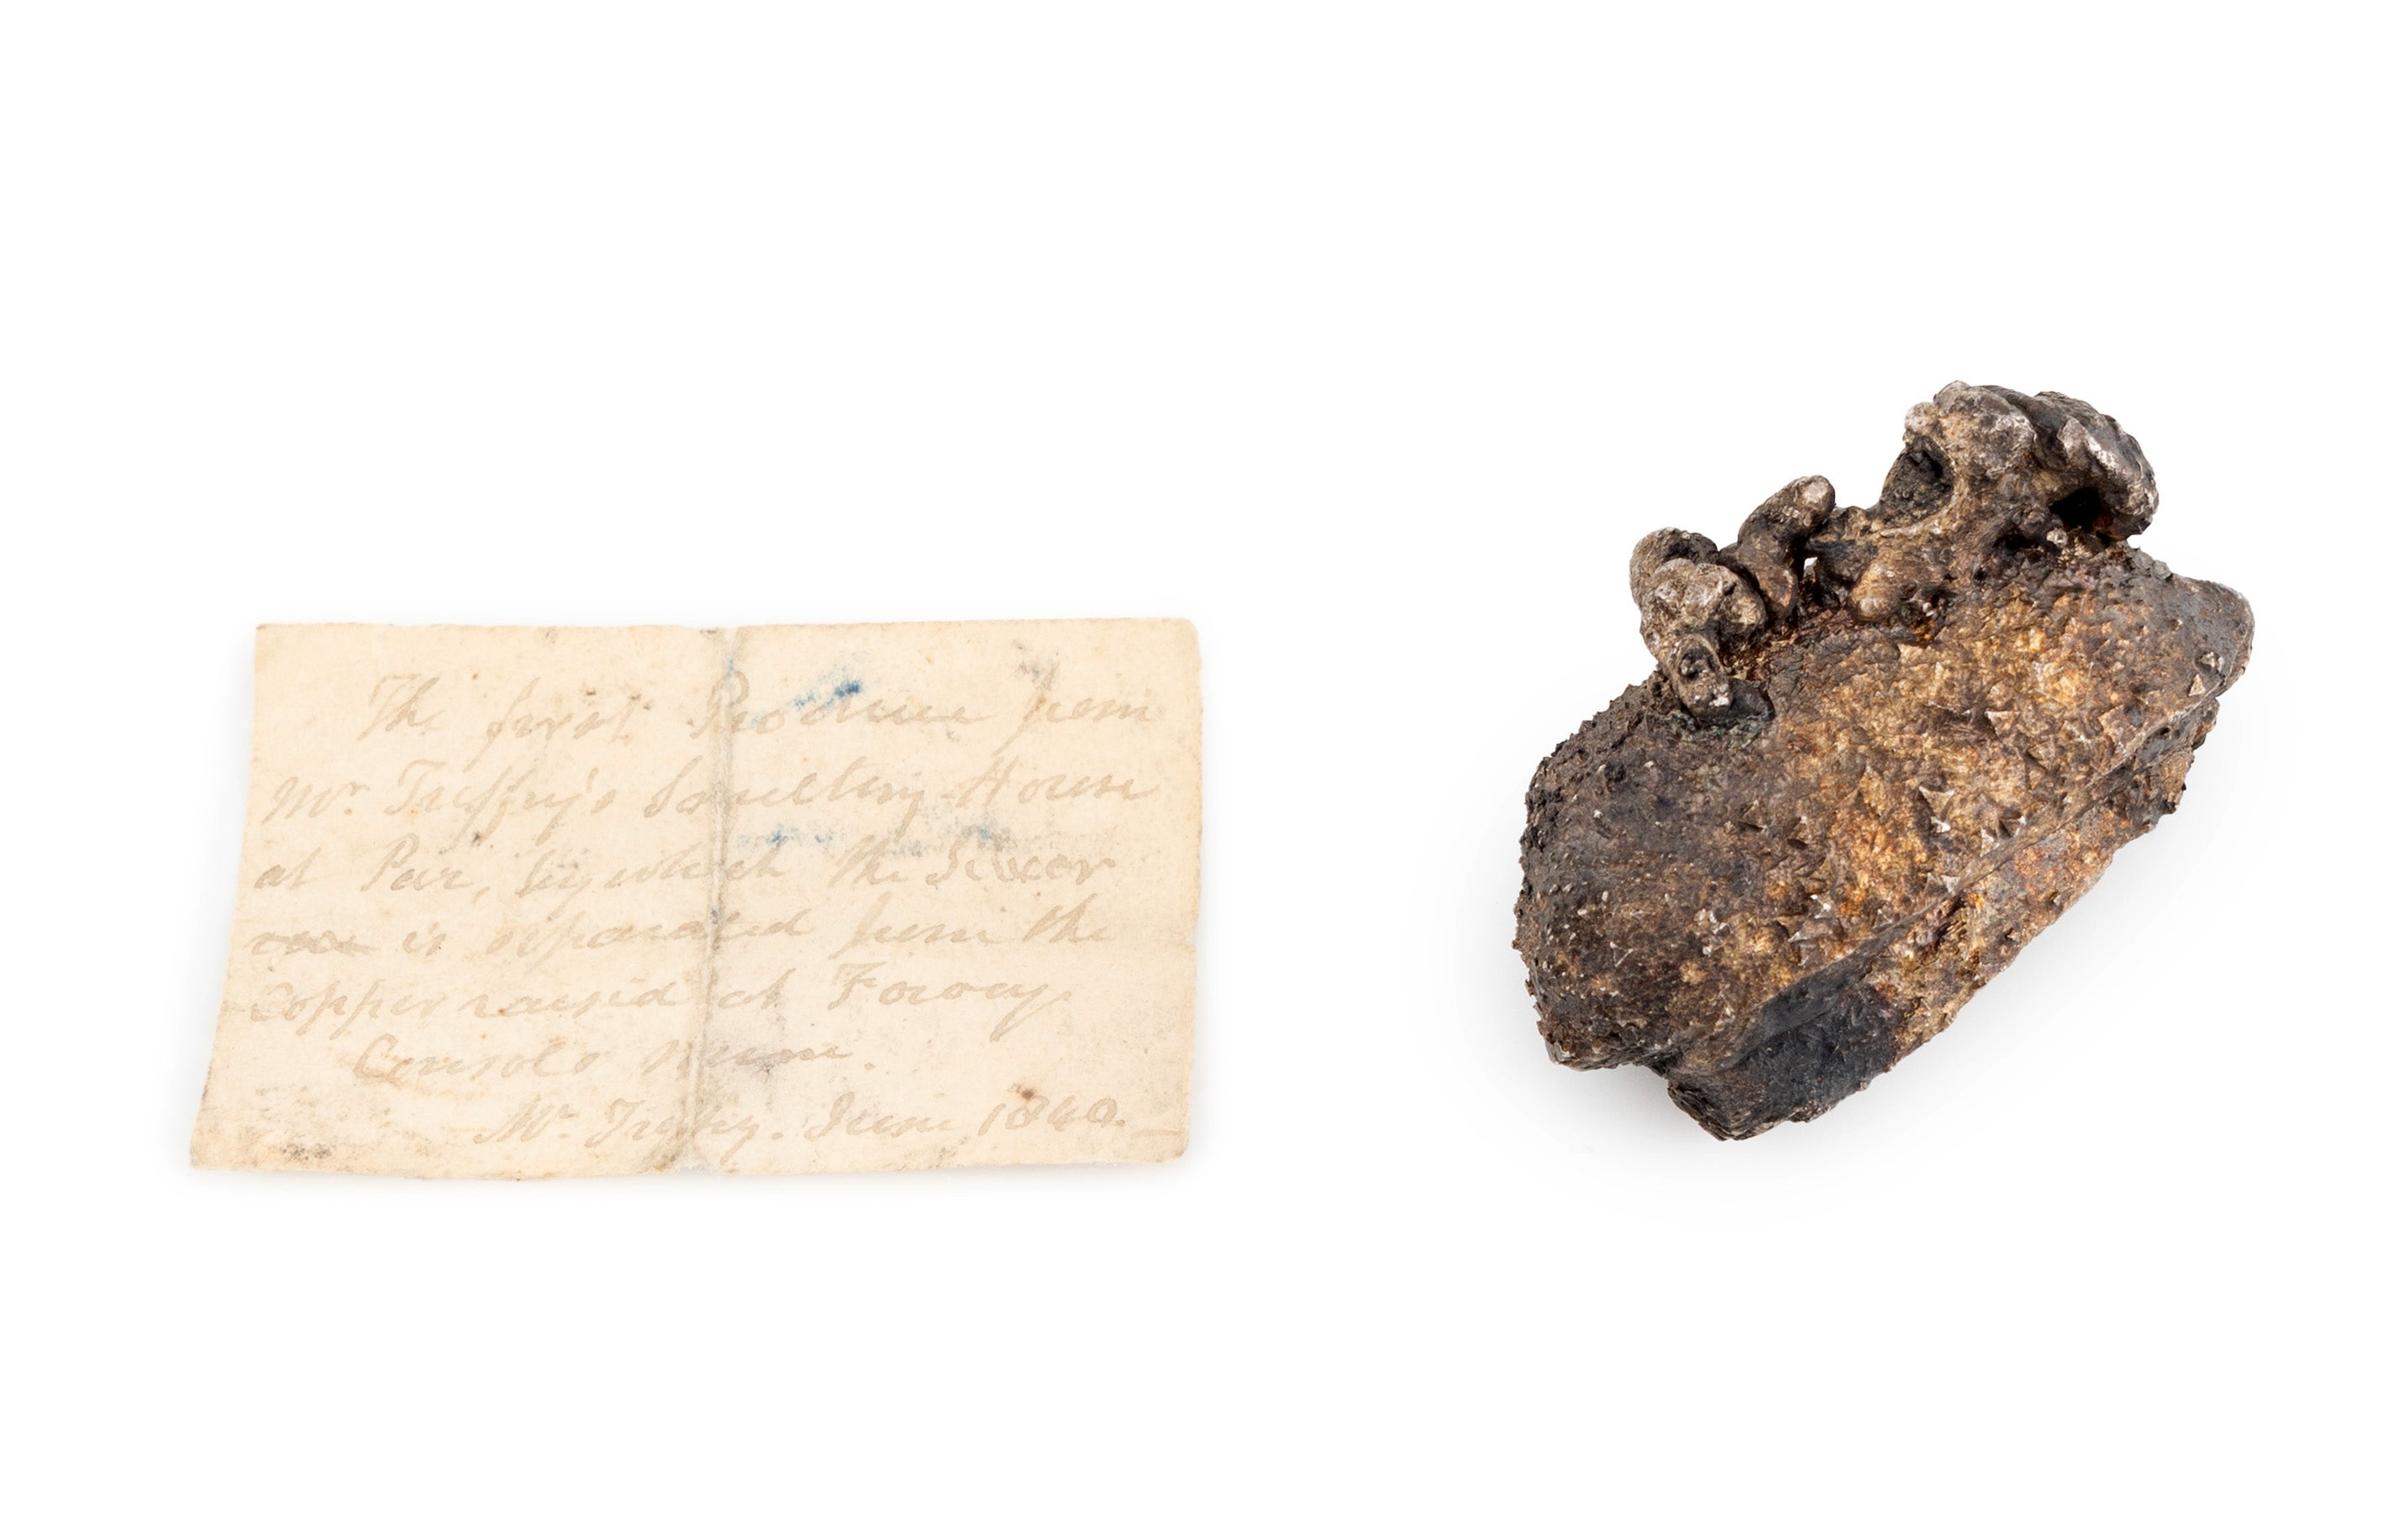 The first Produce from
Mr. Treffry's Smelting House
at Par, by which the Silver
is separated from the
Copper raised at Fowey
Consols Mine.
Mr. Treffry. June 1840.